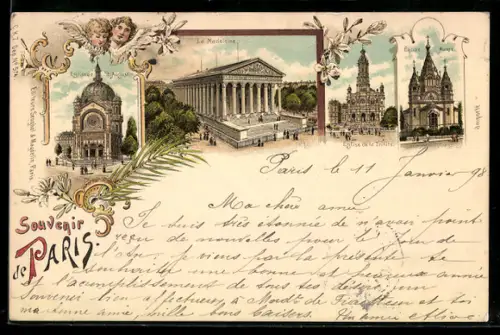 La Madeleine
Eglise de la Trinité
Souvenir
de PARIS.
Paris le 11 Janvier 98
Ma chère amie
Je suis très étonnée de n'avoir point
reçu de nouvelles pour le jour de
l'An, je viens par la présente te
souhaiter une bonne et heureuse année
et l'accomplissement de tous tes désirs, un
Souvenir bien affectueux à et toi
ma bonne amie, mille bons baisers. Ton amie